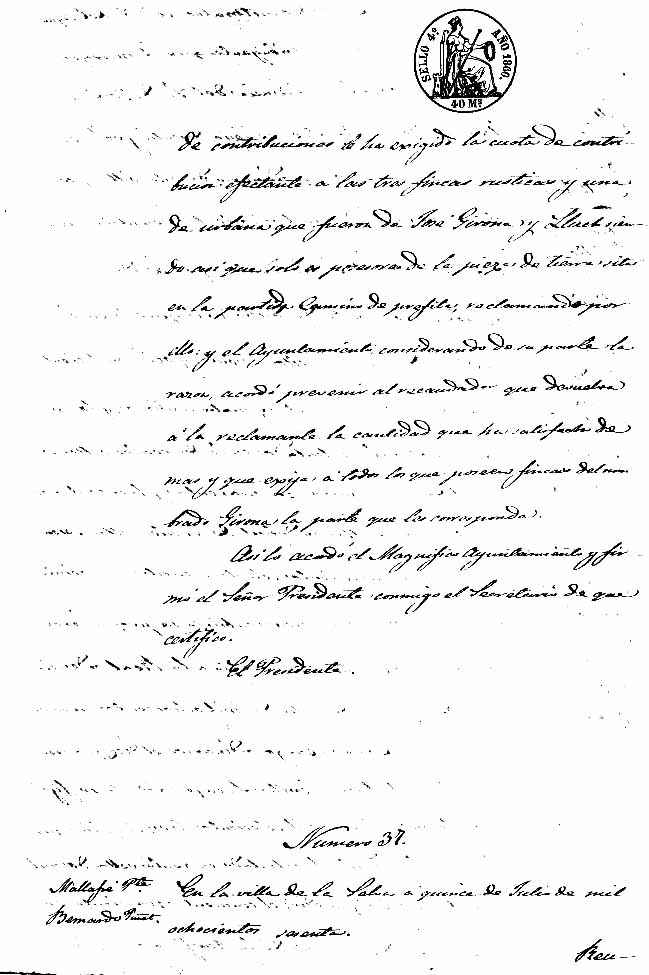 SELLO 4º AÑO 1860.
40 Ms
de contribuciones se ha exigido la cuota de contri-
bucion efectante á las tres fincas rusticas y una
de urbana que fueron de José Girona y Lluch sien-
do asi que solo es poseedora de la pieza de tierra sita
en la partida de reclamando por
ello: y el Ayuntamiento considerando de su parte la
razon, acordó prevenir al recaudador que devuelva
á la reclamante la cantidad que ha satisfecho de
mas y que exija á todos los que poseen fincas del nom-
brado Girona la parte que les corresponda.
Asi lo acordó el Magnifico Ayuntamiento y fir-
mó el Señor Presidente conmigo el Secretario de que
certifico.
El Presidente.
Numero 37.
Mallafré Pte
Bernardo
En la villa de la Selva a quince de Julio de mil
ochocientos sesenta.
Reu-